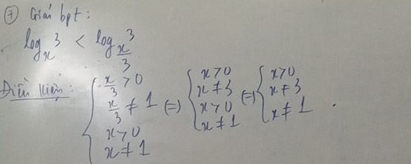 ⑦ Giải bpt:
log_x 3 < log_{x/3} 3
Điều kiện: { x/3 > 0 ; x/3 ≠ 1 ; x > 0 ; x ≠ 1 (=) { x > 0 ; x ≠ 3 ; x > 0 ; x ≠ 1 (=) { x > 0 ; x ≠ 3 ; x ≠ 1 .